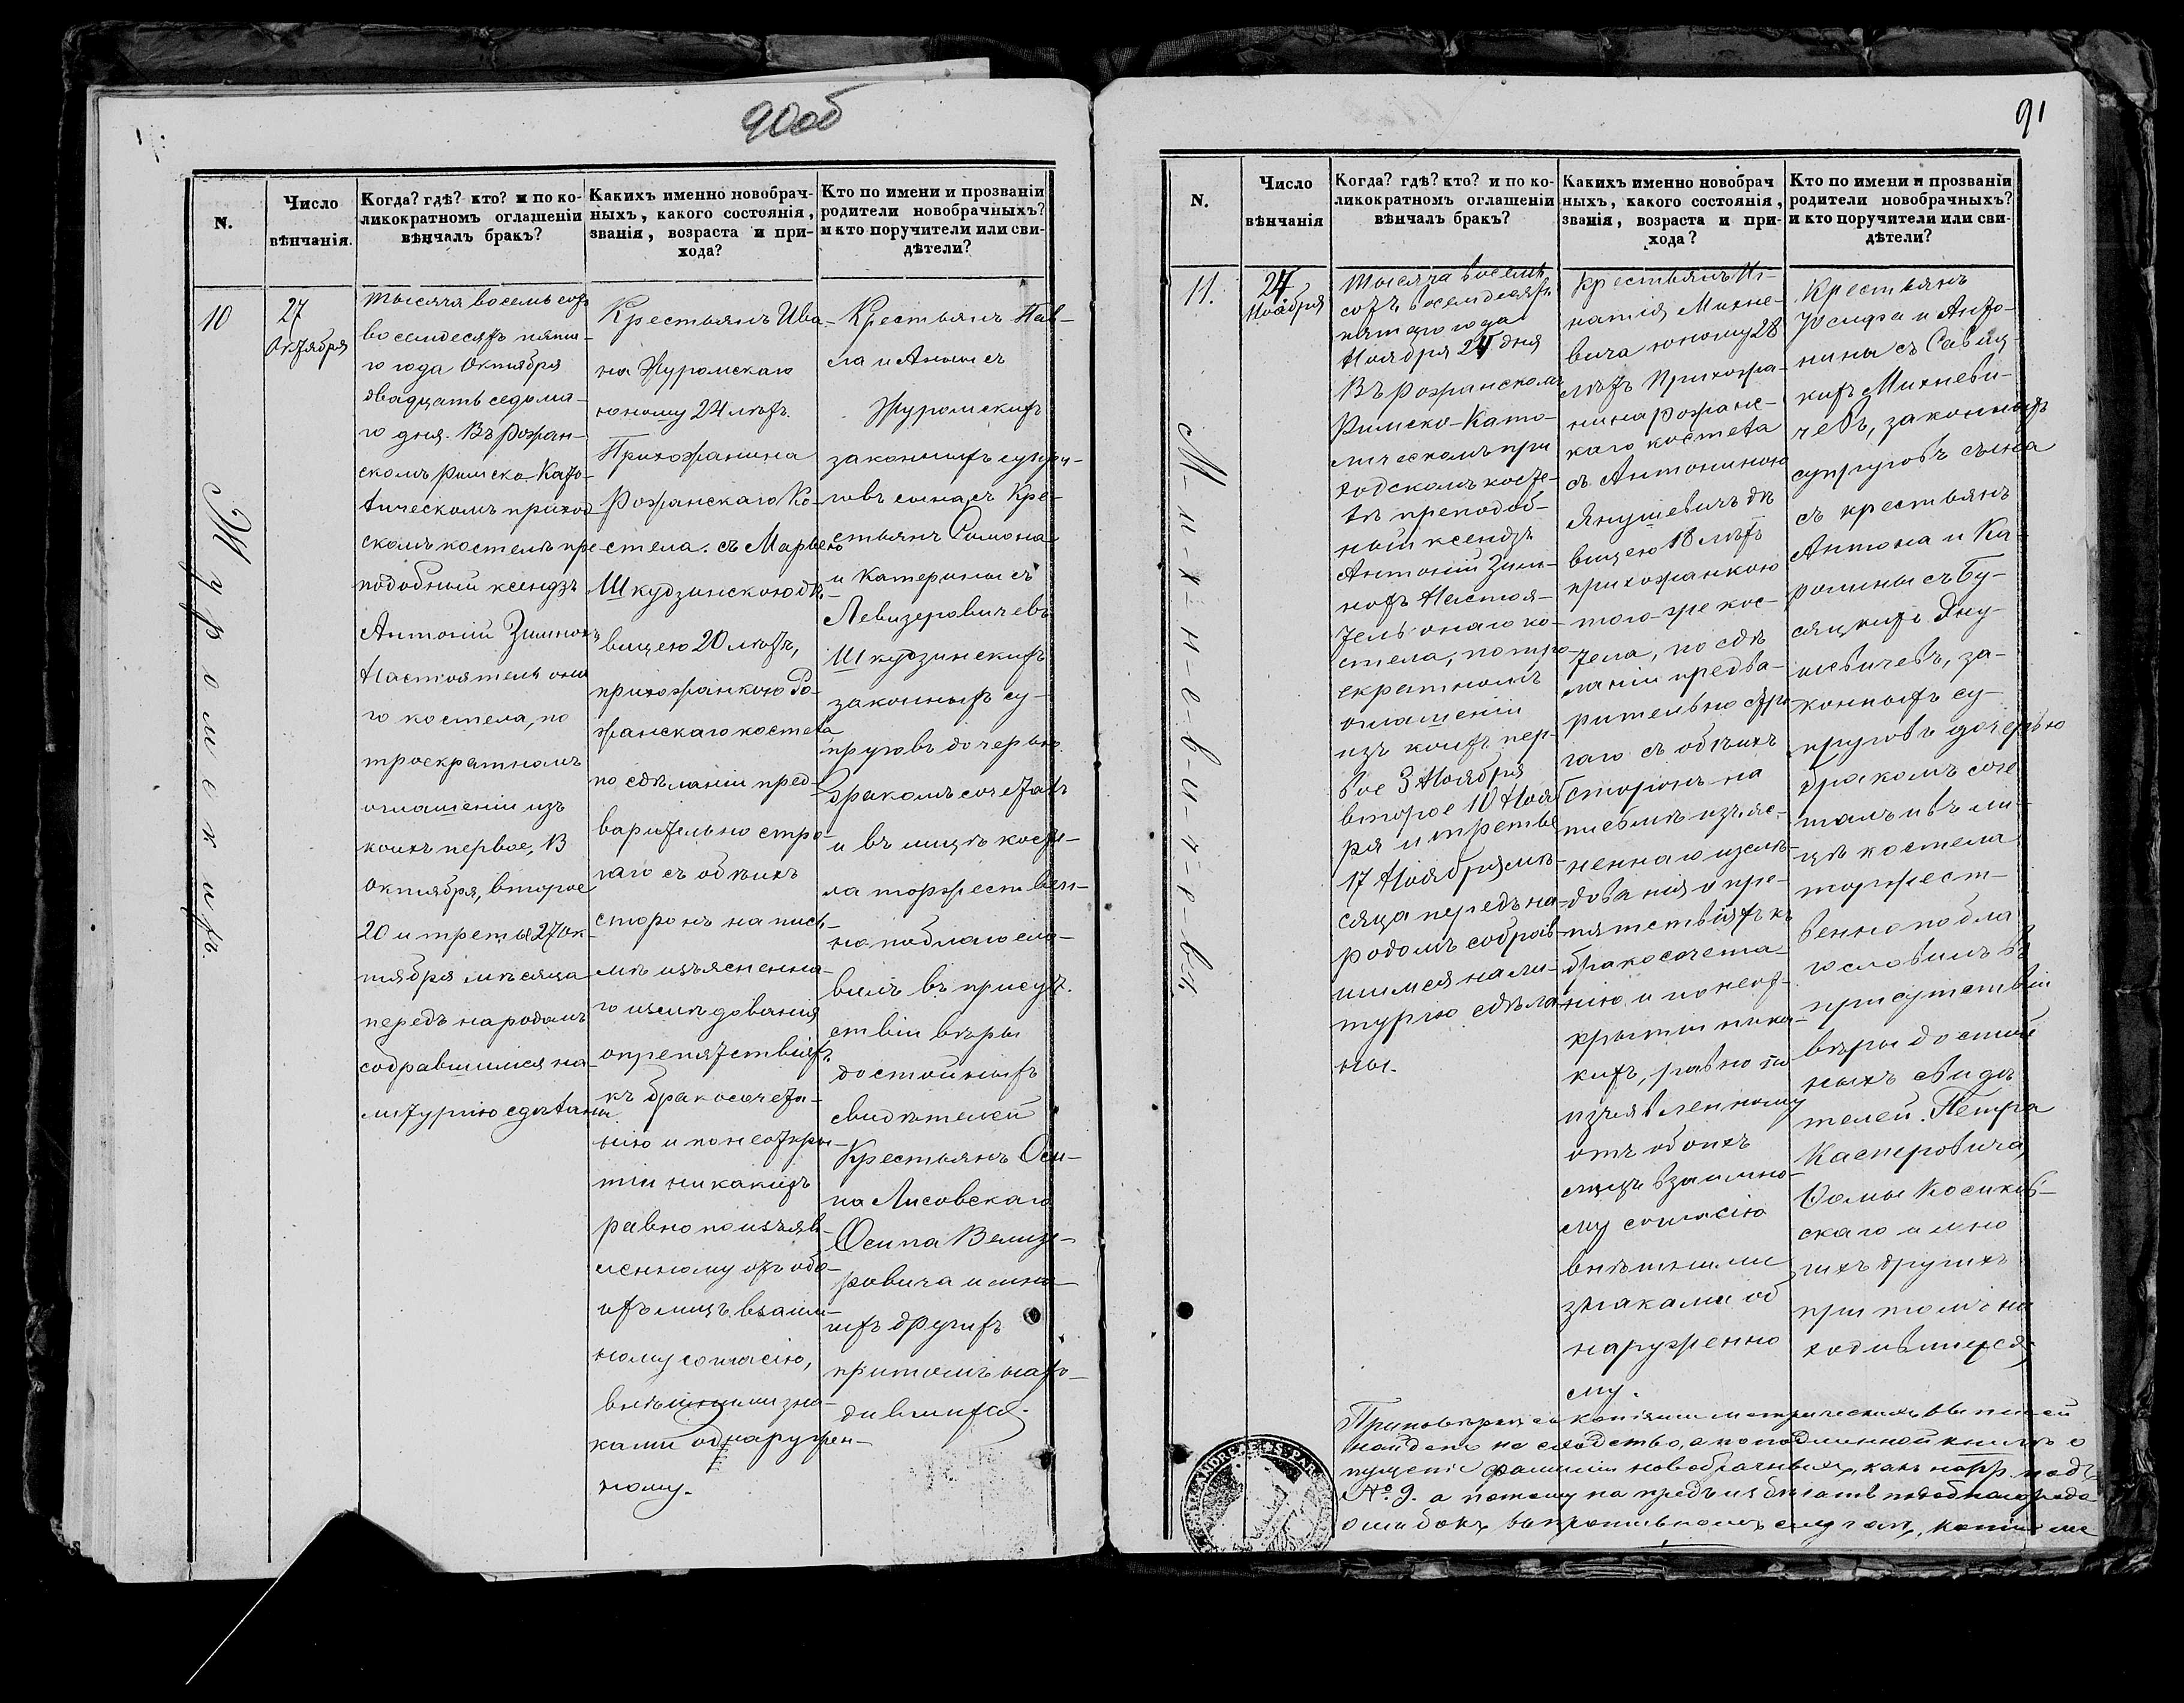 90 об
N.
Число
вѣнчанія.
Когда? гдѣ? кто? и по ко-
ликократномъ оглашеніи
вѣнчалъ бракъ?
Какихъ именно новобрач-
ныхъ, какого состоянія,
званія, возраста и при-
хода?
Кто по имени и прозванію
родители новобрачныхъ?
и кто поручители или сви-
дѣтели?
Журомскихъ.
10
27
Октября
Тысяча восемь сотъ
восемдесятъ пята-
го года Октября
двадцать седьма-
го дня. Въ Рожан-
скомъ Римско-Като-
лическомъ приход-
скомъ костелѣ пре
подобный ксендзъ
Антоній Зимнохъ
Настоятель она
го костела, по
троекратномъ
оглашеніи изъ
коихъ первое, 13
Октября, второе
20 и третье 27 Ок-
тября мѣсяца
передъ народомъ
собравшимся на
литургію сдѣланы.
Крестьянъ Ива-
на Журомскаго
юному 24 лѣтъ
Прихожанина
Рожанскаго Ко-
стела. съ Марьею
Шкудзинскою дѣ-
вицею 20 лѣтъ,
прихожанкою Ро-
жанскаго костела
по сдѣланіи пред-
варительно стро-
гаго съ обѣихъ
сторонъ на пись-
мѣ изъясненна-
го изслѣдованія
о препятствіяхъ
къ бракосочета-
нію и по неоткры-
тіи никакихъ
равно по изъяв-
ленному отъ обо-
ихъ лицъ взаим-
ному согласію,
внѣшними зна-
ками обнаружен-
ному.
Крестьянъ Пав-
ла и Анны съ
Журомскихъ
законныхъ супру-
говъ сына, съ Кре-
стьянъ Симона
и Катерины съ
Левизеровичевъ
Шкудзинскихъ
законныхъ су-
пруговъ дочерью
бракомъ сочеталъ
и въ лицѣ косте-
ла торжествен-
но поблагосло-
вилъ въ присут-
ствіи вѣры
достойныхъ
свидѣтелей
Крестьянъ Оси-
па Лисовскаго
Осипа Велизе-
ровича и мно-
гихъ другихъ
при томъ нахо-
дившихся.
91
N.
Число
вѣнчанія
Когда? гдѣ? кто? и по ко-
ликократномъ оглашеніи
вѣнчалъ бракъ?
Какихъ именно новобрач
ныхъ, какого состоянія,
званія, возраста и при-
хода?
Кто по имени и прозваніи
родители новобрачныхъ?
и кто поручители или сви-
дѣтели?
М-и-х-н-е-в-и-ч-е-въ.
11.
24
Ноября
Тысяча восемь
сотъ восемдесятъ
пятаго года
Ноября 24 дня
Въ Рожанскомъ
Римско-Като-
лическомъ при
ходскомъ косте-
лѣ преподоб-
ный ксендзъ
Антоній Зим-
нохъ Настоя-
тель онаго ко-
стела, по тро-
екратномъ
оглашеніи
изъ коихъ пер-
вое 3 Ноября
второе 10 Нояб
ря и третье
17 Ноября мѣ-
сяца передъ на-
родомъ собрав-
шимся на ли-
тургію сдѣла
ны.
Крестьянъ Иг-
натія Михне-
вича юному 28
лѣтъ Прихожа-
нина Рожанс-
каго костела
съ Антониною
Янушевичъ дѣ
вицею 18 лѣтъ
прихожанкою
того-же кос-
тела, по сдѣ
ланіи предва-
рительно стро
гаго съ обѣихъ
сторонъ на
письмѣ изъяс-
неннаго изслѣ-
дованія о пре-
пятствіяхъ къ
бракосочета-
нію и по неот-
крытіи ника-
кихъ, равно по
изъявленному
отъ обоихъ
лицъ взаимно-
му согласію
внѣшними
знаками об
наруженно
му.
Крестьянъ
Юсифа и Анто-
нины съ Савиц-
кихъ Михневи-
чевъ, законныхъ
супруговъ сына
съ крестьянъ
Антона и Ка-
ролины съ Бу-
сяцкихъ Яну-
шевичевъ, за-
конныхъ су-
пруговъ дочерью
бракомъ соче
талъ и въ ли-
цѣ костела
торжест-
венно побла
гословилъ въ
присутствіи
вѣры достой
ныхъ свидѣ
телей. Петра
Касперовича,
Ѳомы Косиков-
скаго и мно
гихъ другихъ
при томъ на
ходившихся,
При повѣркѣ съ копіями метрическихъ выписей
найдено не сходство, а по подлинной книгѣ о
пущеніе фамиліи новобрачныхъ, какъ напр. подъ
№ 9. а потому на предъ избѣгать подобнаго рода
ошибокъ въ противномъ случаѣ,